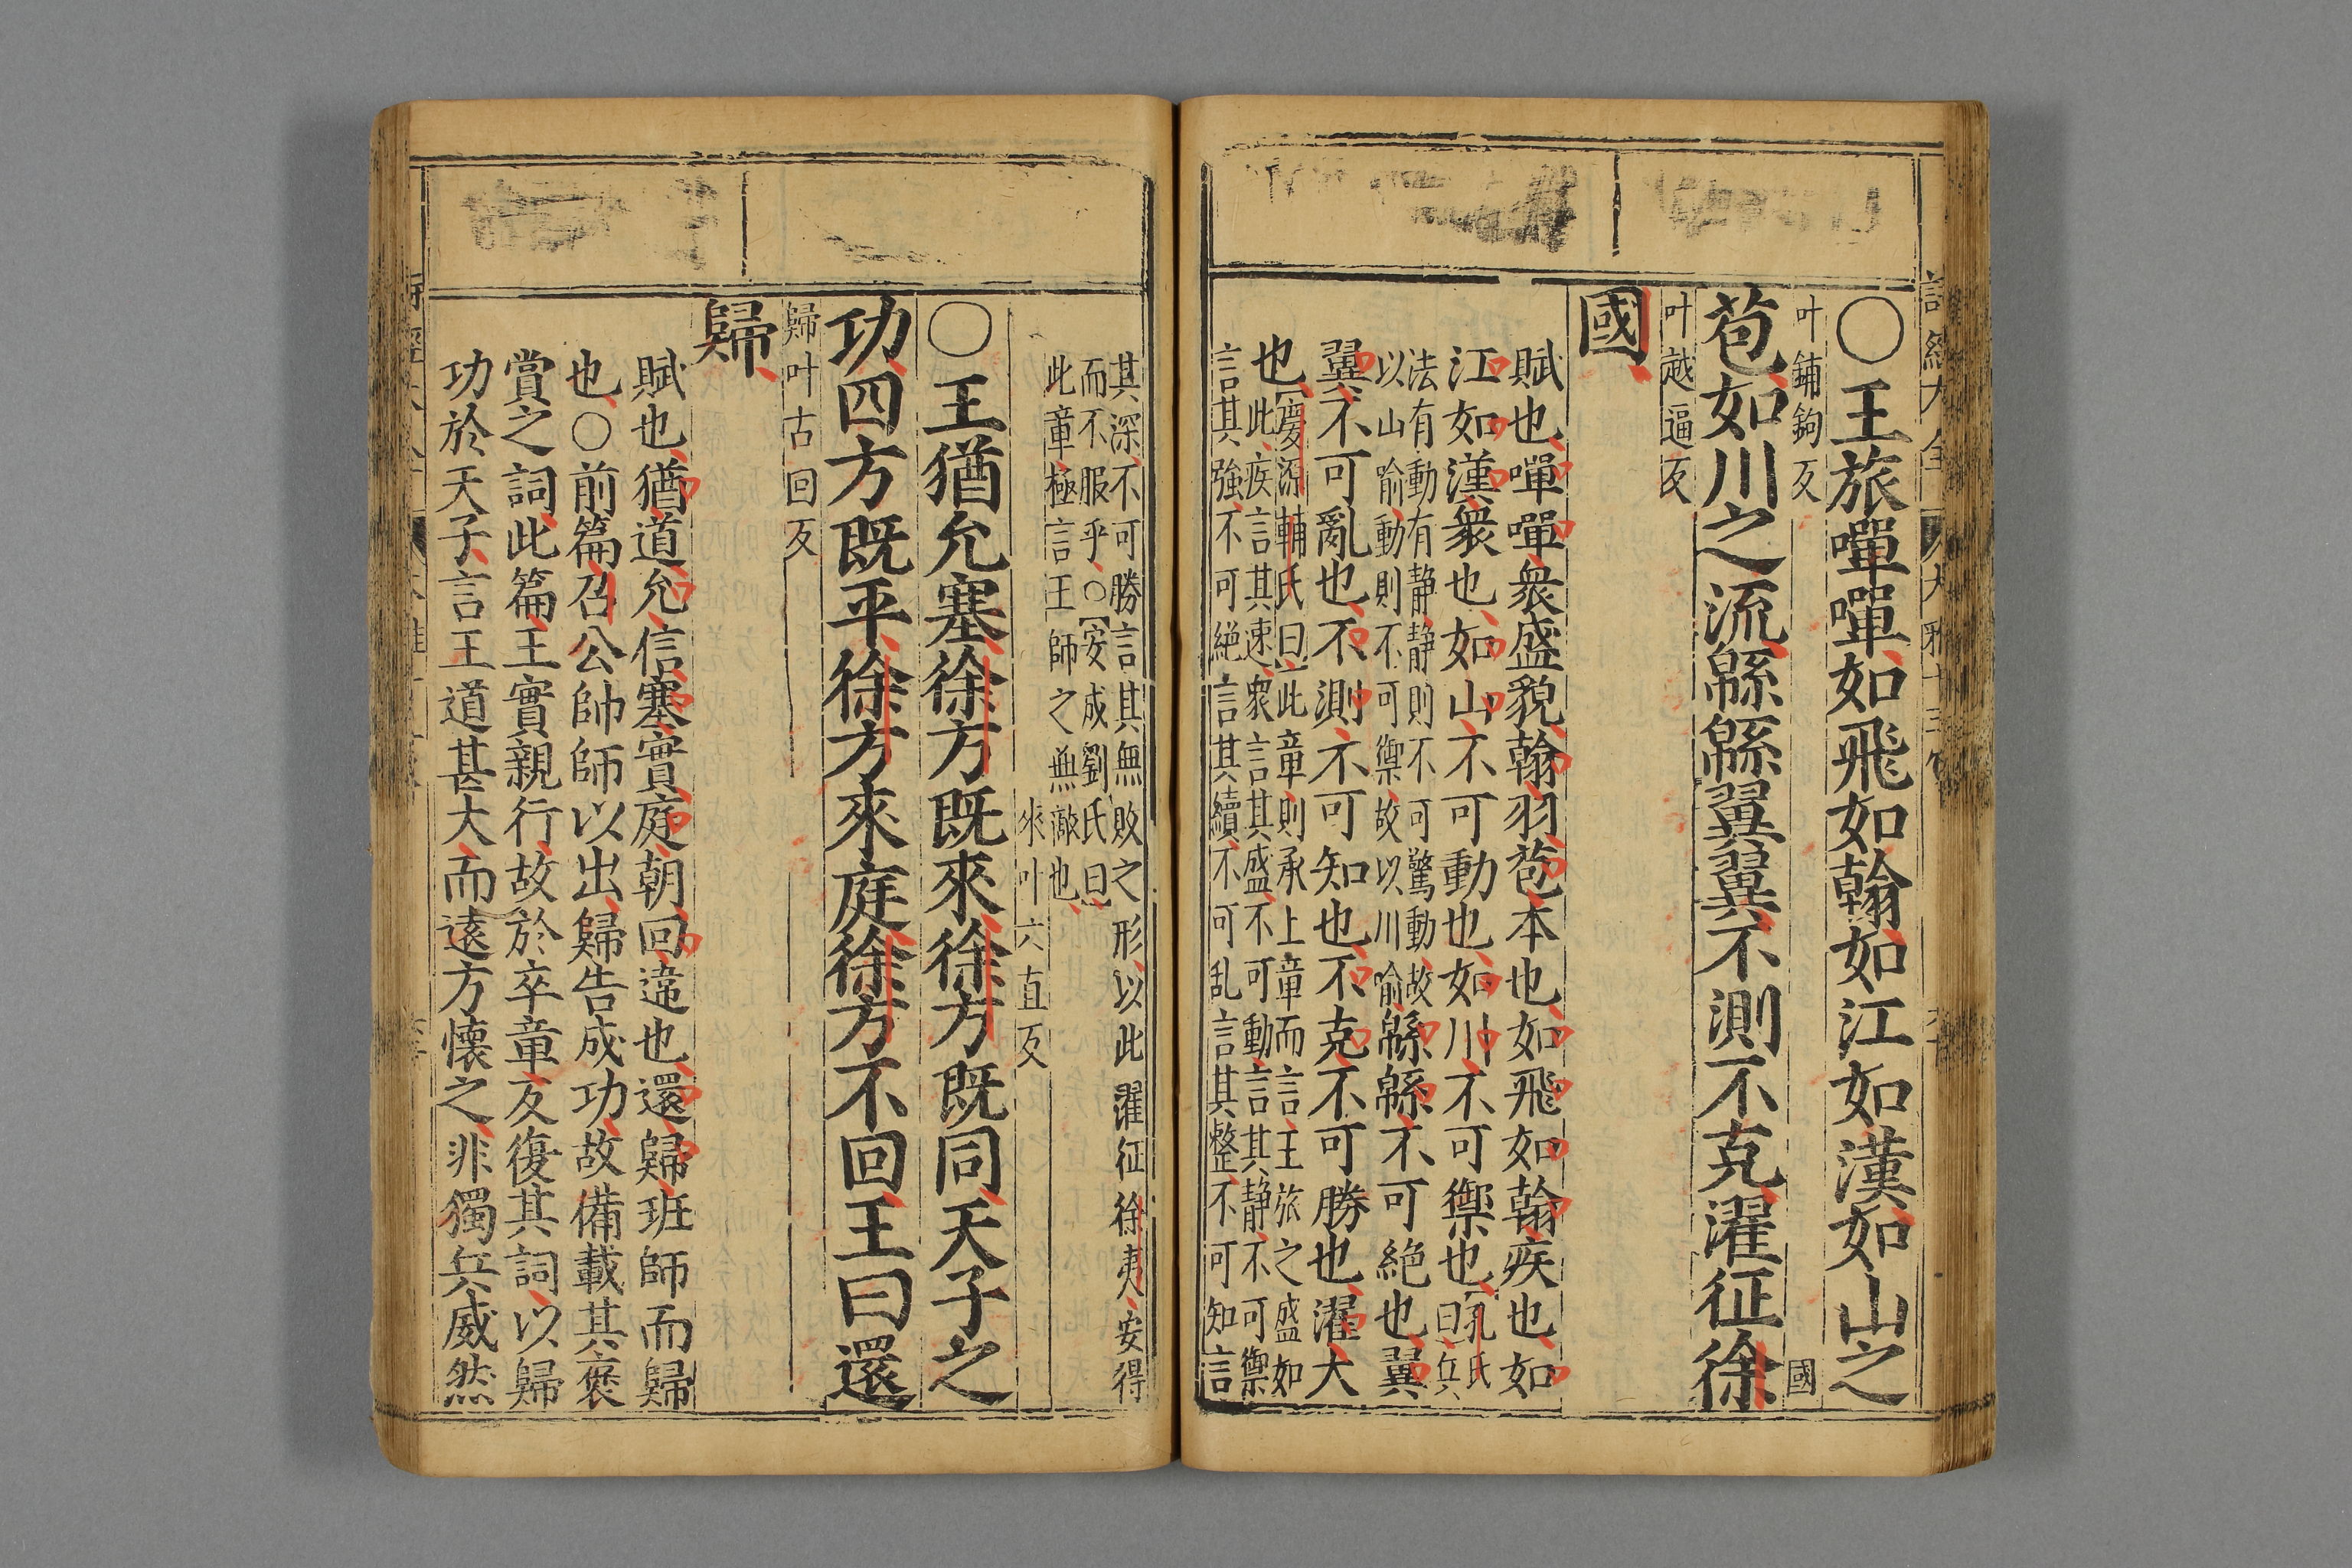 ○王旅嘽嘽如飛如翰如江如漢如山之
叶鋪鉤反
國
苞如川之流緜緜翼翼不測不克濯征徐
叶越逼反
國
賦也嘽嘽衆盛貌翰羽苞本也如飛如翰疾也如
江如漢衆也如山不可動也如川不可禦也
孔氏
曰兵
法有動有静静則不可驚動故
以山喻動則不可禦故以川喻
緜緜不可絶也翼
翼不可亂也不測不可知也不克不可勝也濯大
也
慶源輔氏曰此章則承上章而言王旅之盛如
此疾言其速衆言其盛不可動言其静不可禦
言其強不可絶言其續不可乱言其整不可知言
其深不可勝言其無敗之形以此濯征徐夷安得
而不服乎○安成劉氏曰
此章極言王師之無敵也
來叶六直反
○王猶允塞徐方既來徐方既同天子之
功四方既平徐方來庭徐方不回王曰還
歸叶古回反
歸
賦也猶道允信塞實庭朝回違也還歸班師而歸
也○前篇召公帥師以出歸告成功故備載其褒
賞之詞此篇王實親行故於卒章反復其詞以歸
功於天子言王道甚大而遠方懷之非獨兵威然